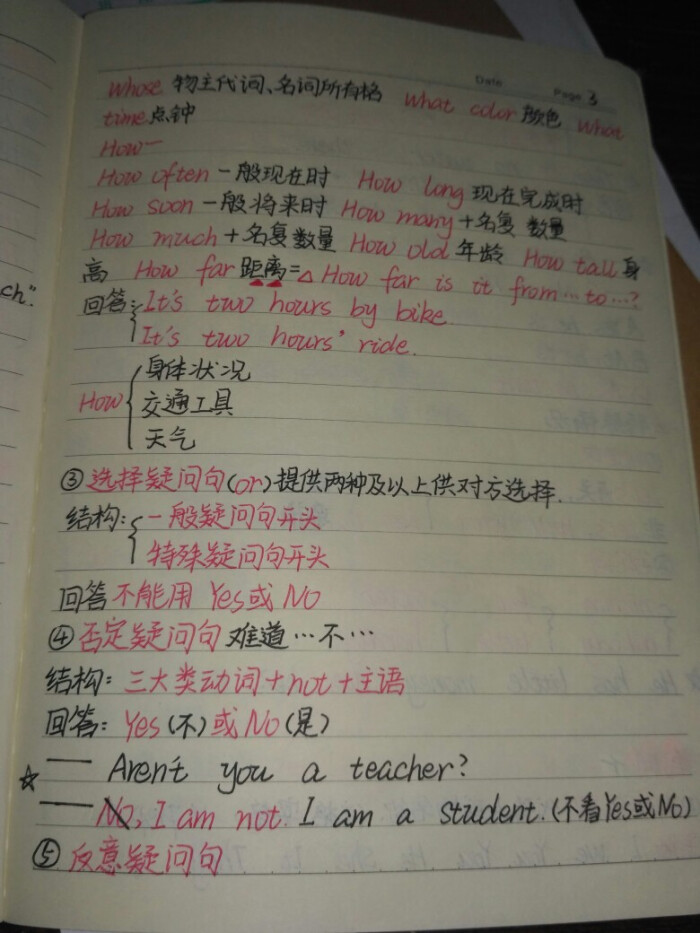 Date Page 3
whose 物主代词、名词所有格 what color 颜色 what
time 点钟
How一
How often 一般现在时 How long 现在完成时
How soon 一般将来时 How many + 名复 数量
How much + 名复 数量 How old 年龄 How tall 身
高 How far 距离 = △ How far is it from … to …?
ch".
回答: It's two hours by bike.
It's two hours' ride.
身体状况
How 交通工具
天气
③ 选择疑问句 (or) 提供两种及以上供对方选择.
结构: 一般疑问句开头
特殊疑问句开头
回答不能用 Yes或 No
④ 否定疑问句 难道…不…
结构: 三大类动词+not+主语
回答: Yes (不) 或 No (是)
— Aren't you a teacher?
☆ — No, I am not. I am a student. (不看Yes或No)
⑤ 反意疑问句